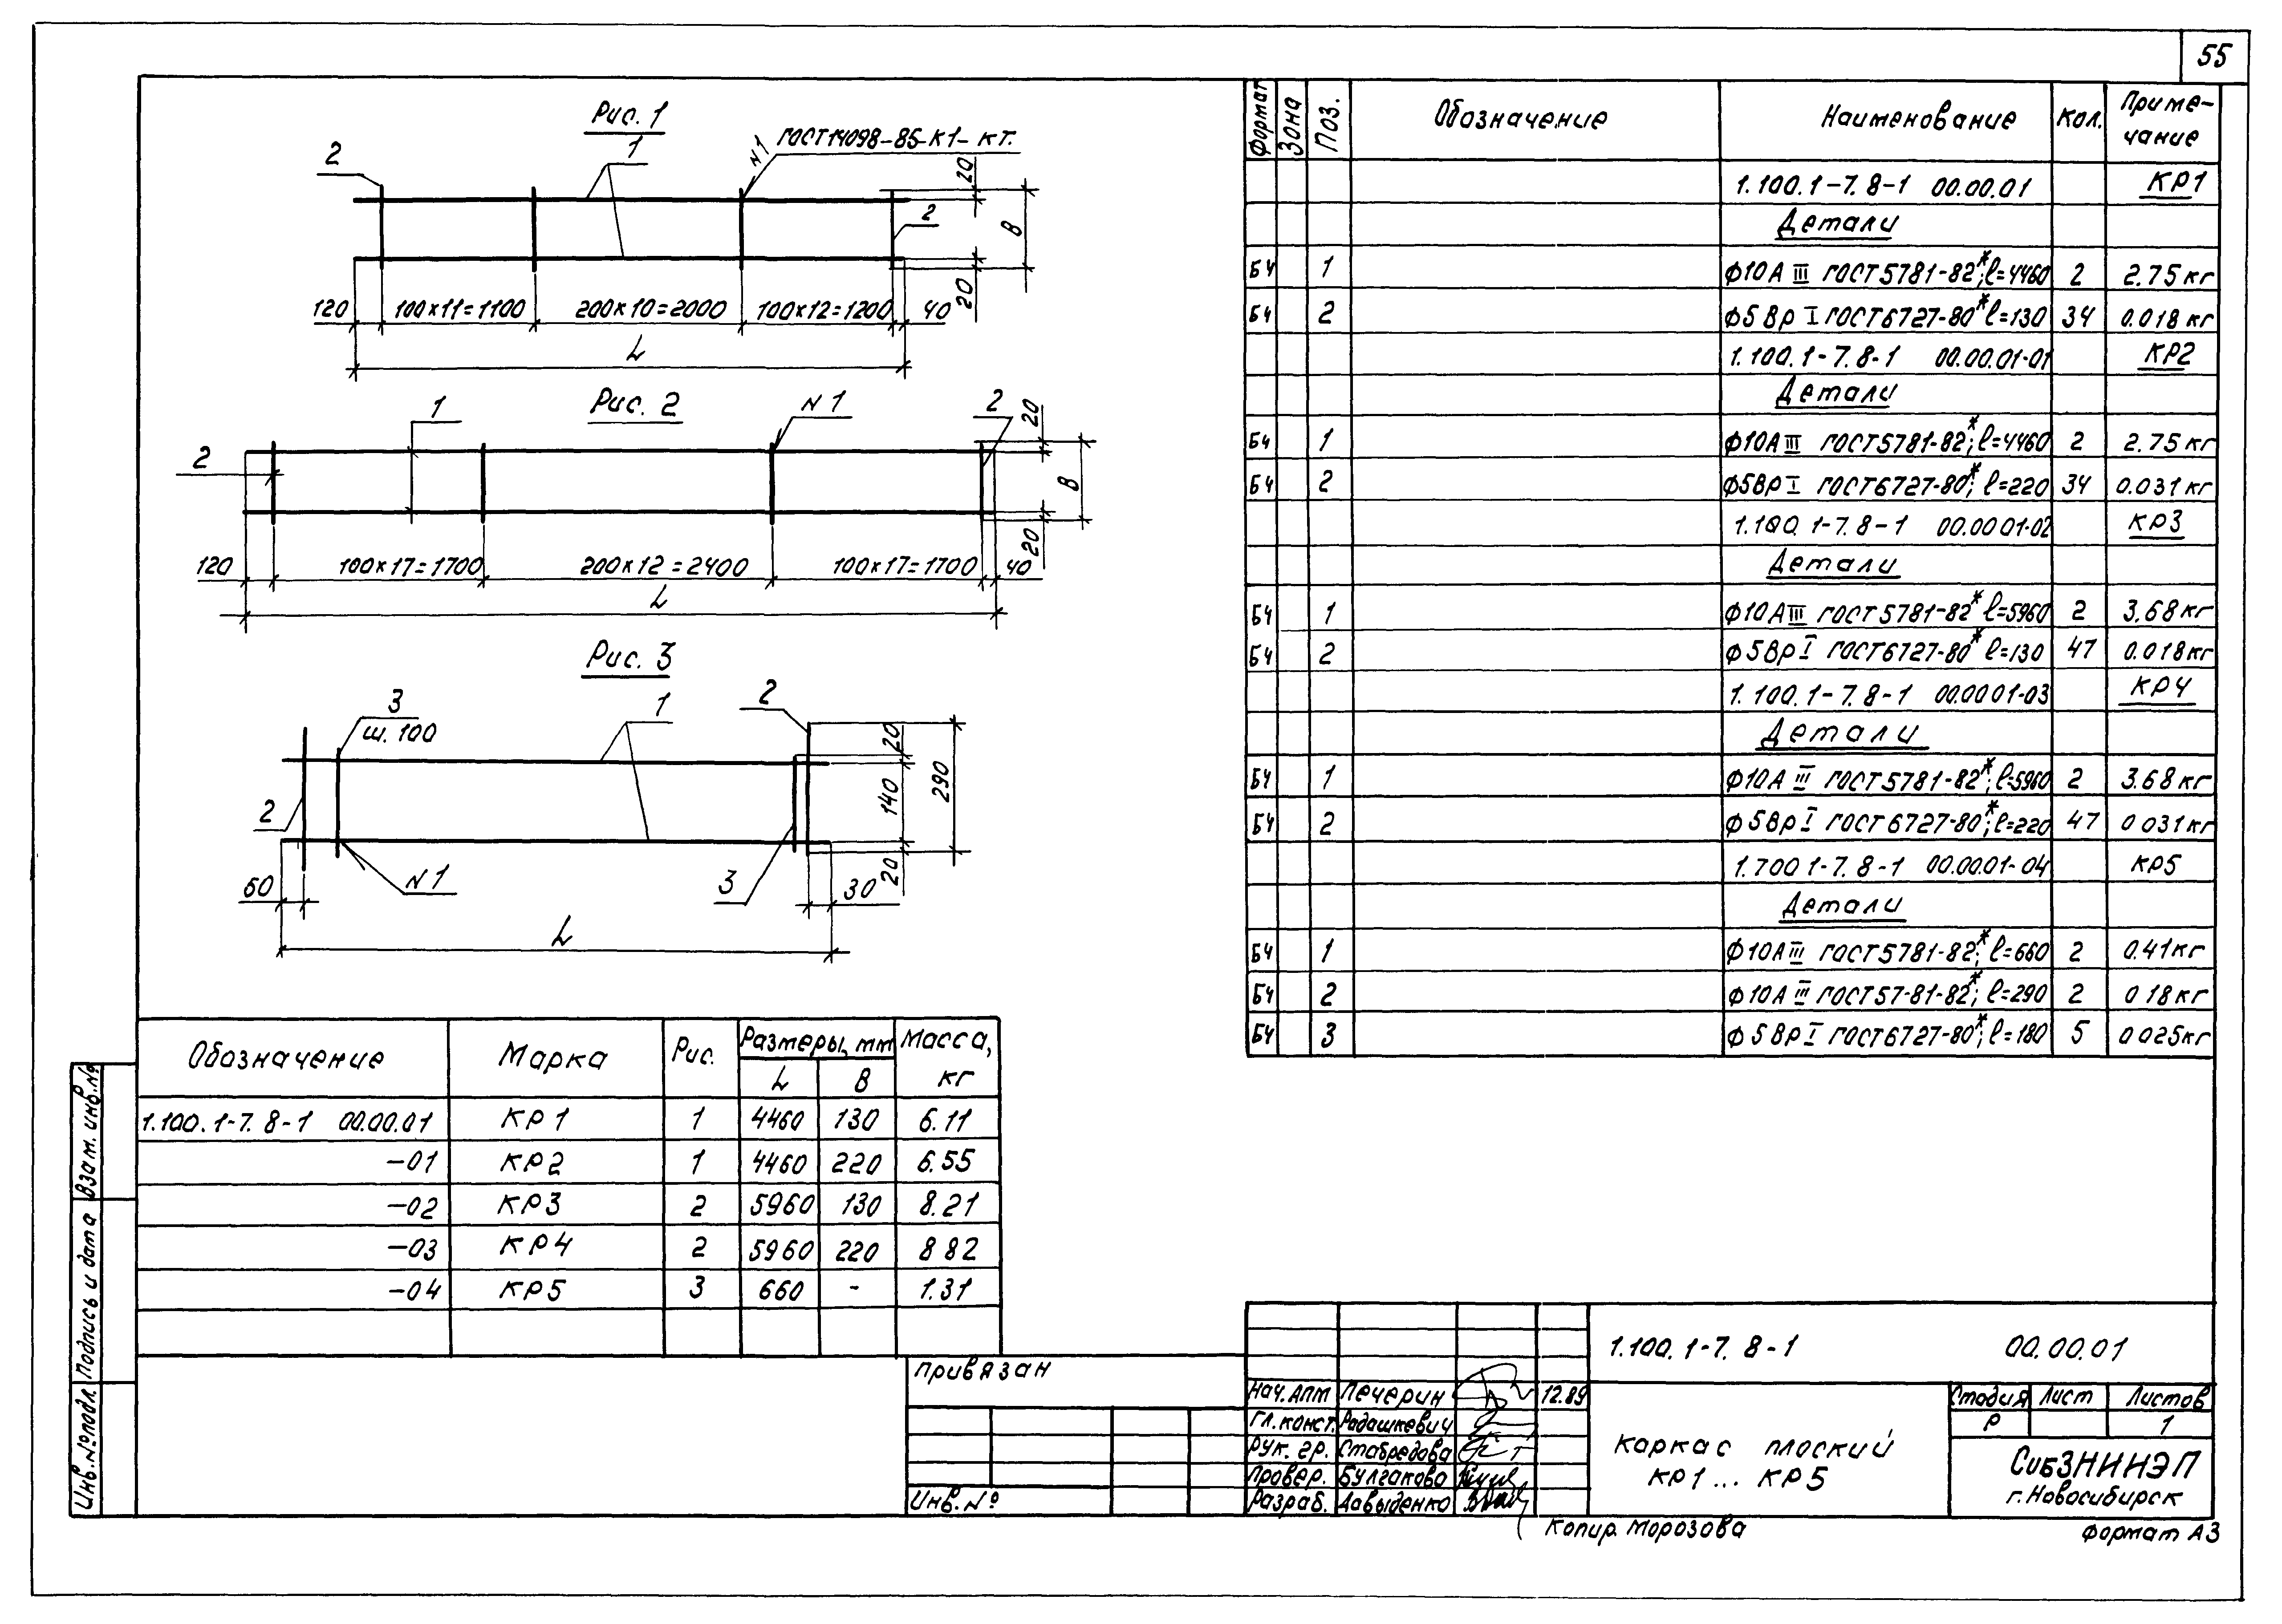 55
Рис. 1
2
1
N1
ГОСТ14098-85-К1-КТ.
20
2
В
20
120
100х11=1100
200х10=2000
100х12=1200
40
L
Рис. 2
1
N1
2
20
2
В
20
120
100х17=1700
200х12=2400
100х17=1700
40
L
Рис. 3
3
ш.100
1
2
20
140
290
20
2
60
N1
3
30
L
Обозначение Марка Рис. Размеры, мм Масса, кг
L В
1.100.1-7.8-1 00.00.01 КР1 1 4460 130 6.11
-01 КР2 1 4460 220 6.55
-02 КР3 2 5960 130 8.21
-03 КР4 2 5960 220 8 82
-04 КР5 3 660 - 1.31
Формат Зона Поз. Обозначение Наименование Кол. Приме-
чание
1.100.1-7.8-1 00.00.01 КР1
Детали
БЧ 1 Ф10АIII ГОСТ5781-82*; l=4460 2 2.75кг
БЧ 2 Ф5ВрI ГОСТ6727-80* l=130 34 0.018кг
1.100.1-7.8-1 00.00.01-01 КР2
Детали
БЧ 1 Ф10АIII ГОСТ5781-82*; l=4460 2 2.75кг
БЧ 2 Ф5ВрI ГОСТ6727-80*; l=220 34 0.031кг
1.100.1-7.8-1 00.00 01-02 КР3
Детали
БЧ 1 Ф10АIII ГОСТ5781-82* l=5960 2 3.68кг
БЧ 2 Ф5ВрI ГОСТ6727-80* l=130 47 0.018кг
1.100.1-7.8-1 00.00 01-03 КР4
Детали
БЧ 1 Ф10АIII ГОСТ5781-82*; l=5960 2 3.68кг
БЧ 2 Ф5ВрI ГОСТ6727-80*; l=220 47 0 031кг
1.700 1-7.8-1 00.00.01-04 КР5
Детали
БЧ 1 Ф10АIII ГОСТ5781-82*; l=660 2 0.41кг
БЧ 2 Ф10АIII ГОСТ57-81-82*; l=290 2 0 18кг
БЧ 3 Ф5ВрI ГОСТ6727-80*; l=180 5 0 025кг
Взам. инв.№
Подпись и дата
Инв.№подл.
Привязан
Инв.№
1.100.1-7.8-1 00.00.01
Нач.АПМ Печерин 12.89
Гл.конст. Радашкевич
Рук. гр. Стабредова
Провер. Булгакова
Разраб. Давыденко
Каркас плоский
КР1... КР5
Стадия Лист Листов
Р 1
СибЗНИИЭП
г.Новосибирск
Копир. Морозова
Формат А3